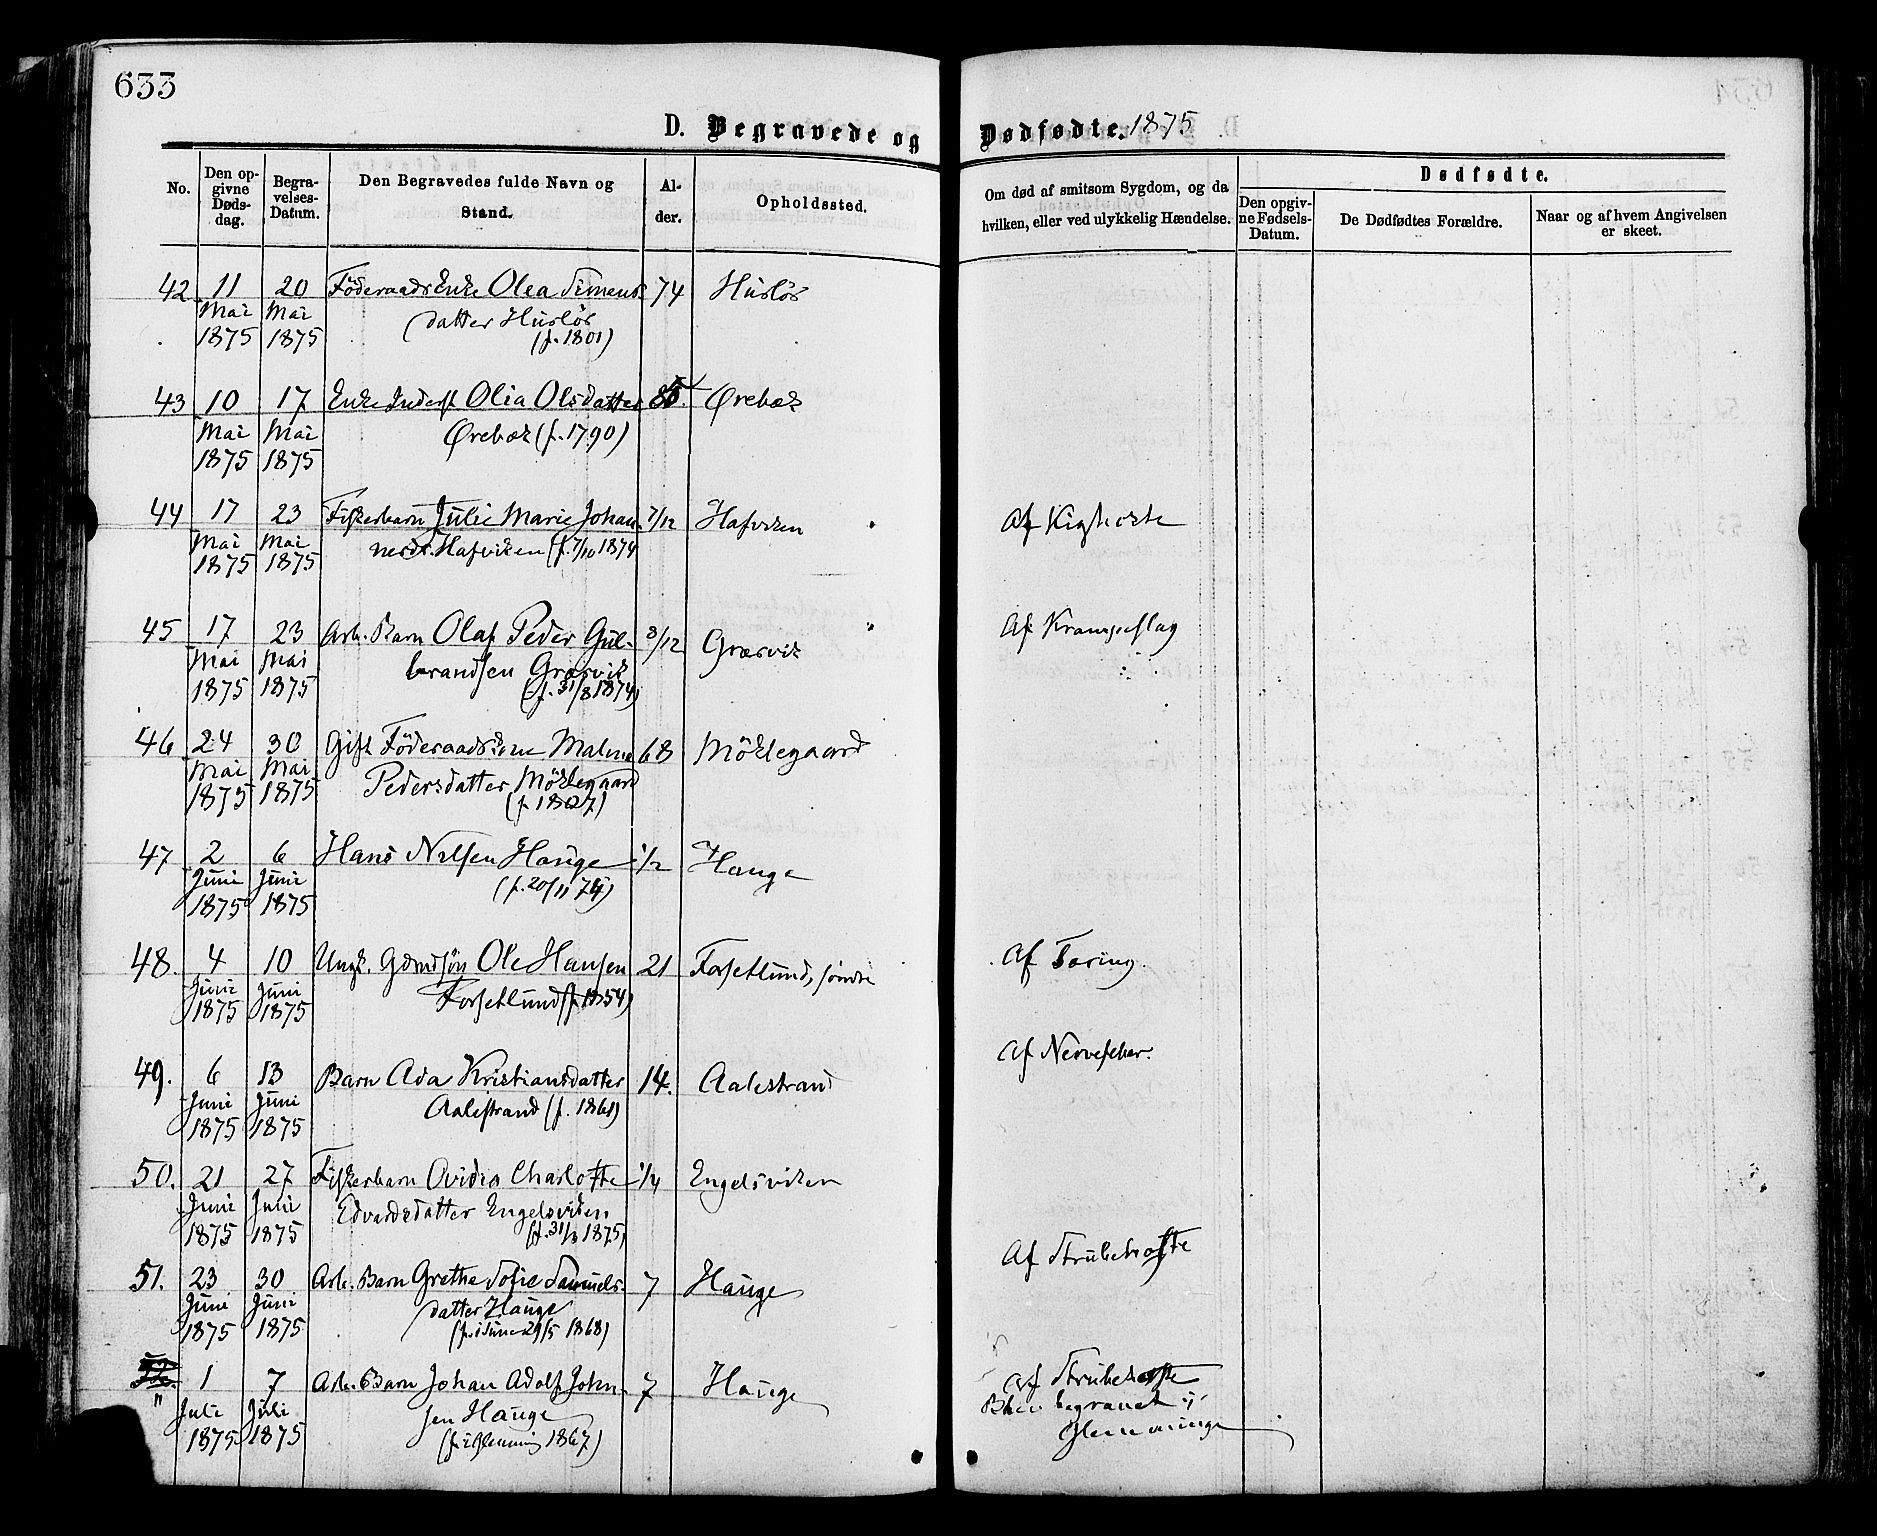 633
D. Begravede og Dødfødte. 1875
No.
Den opgivne Dødsdag.
Begravelses-Datum.
Den Begravedes fulde Navn og Stand.
Alder.
Opholdssted.
Om død af smitsom Sygdom, og da hvilken, eller ved ulykkelig Hændelse.
Dødfødte.
Den opgivne Fødsels-Datum.
De Dødfødtes Forældre.
Naar og af hvem Angivelsen er skeet.
42 11 20 FöderaadsEnke Olea Simens- 74 Huslös
Mai Mai datter Huslös
1875 1875 (f. 1801)
43 10 17 Enke Inderst Olia Olsdatter 85 Ørebæk
Mai Mai Ørebæk (f. 1790)
1875 1875
44 17 23 Fiskerbarn Julie Marie Johan- 7/12 Hafviken Af Kighoste
Mai Mai nesdt. Hafviken (f. 7/10 1874
1875 1875
45 17 23 Arb. Barn Olaf Peder Gul- 8/12 Græsvik Af Krampeslag
Mai Mai brandsen Græsvik
1875 1875 (f. 31/8 1874)
46 24 30 Gift Föderaadskone Malene 68 Möklegaard
Mai Mai Pedersdatter Möklegaard
1875 1875 (f. 1807)
47 2 6 Hans Nilsen Hauge 1/2 Hauge
Juni Juni (f. 20/11 74)
1875 1875
48. 4 10 Ungk. Gaardsön Ole Hansen 21 Forsetlund, söndre Af Tæring.
Juni Juni Forsetlund (f. 1854)
1875 1875
49. 6 13 Barn Ada Kristiansdatter 14. Aalestrand Af Nervefeber.
Juni Juni Aalestrand (f. 1861)
1875 1875
50. 21 27 Fiskerbarn Ovidia Charlotte 1/4 Engelsviken
Juni Juli Edvardsdatter Engelsviken
1875 1875 (f. 31/3 1875)
51. 23 30 Arb. Barn Grethe Sofie Samuels- 7 Hauge Af Strubehoste
Juni Juni datter Hauge
1875 1875 (f. i Tune 29/5 1868)
" 1 7 Arb. Barn Johan Adolf John- 7 Hauge Af Strubehoste
Juli Juli sen Hauge Blev begravet i
1875 1875 (f. i Glemming 1867) Glemminge